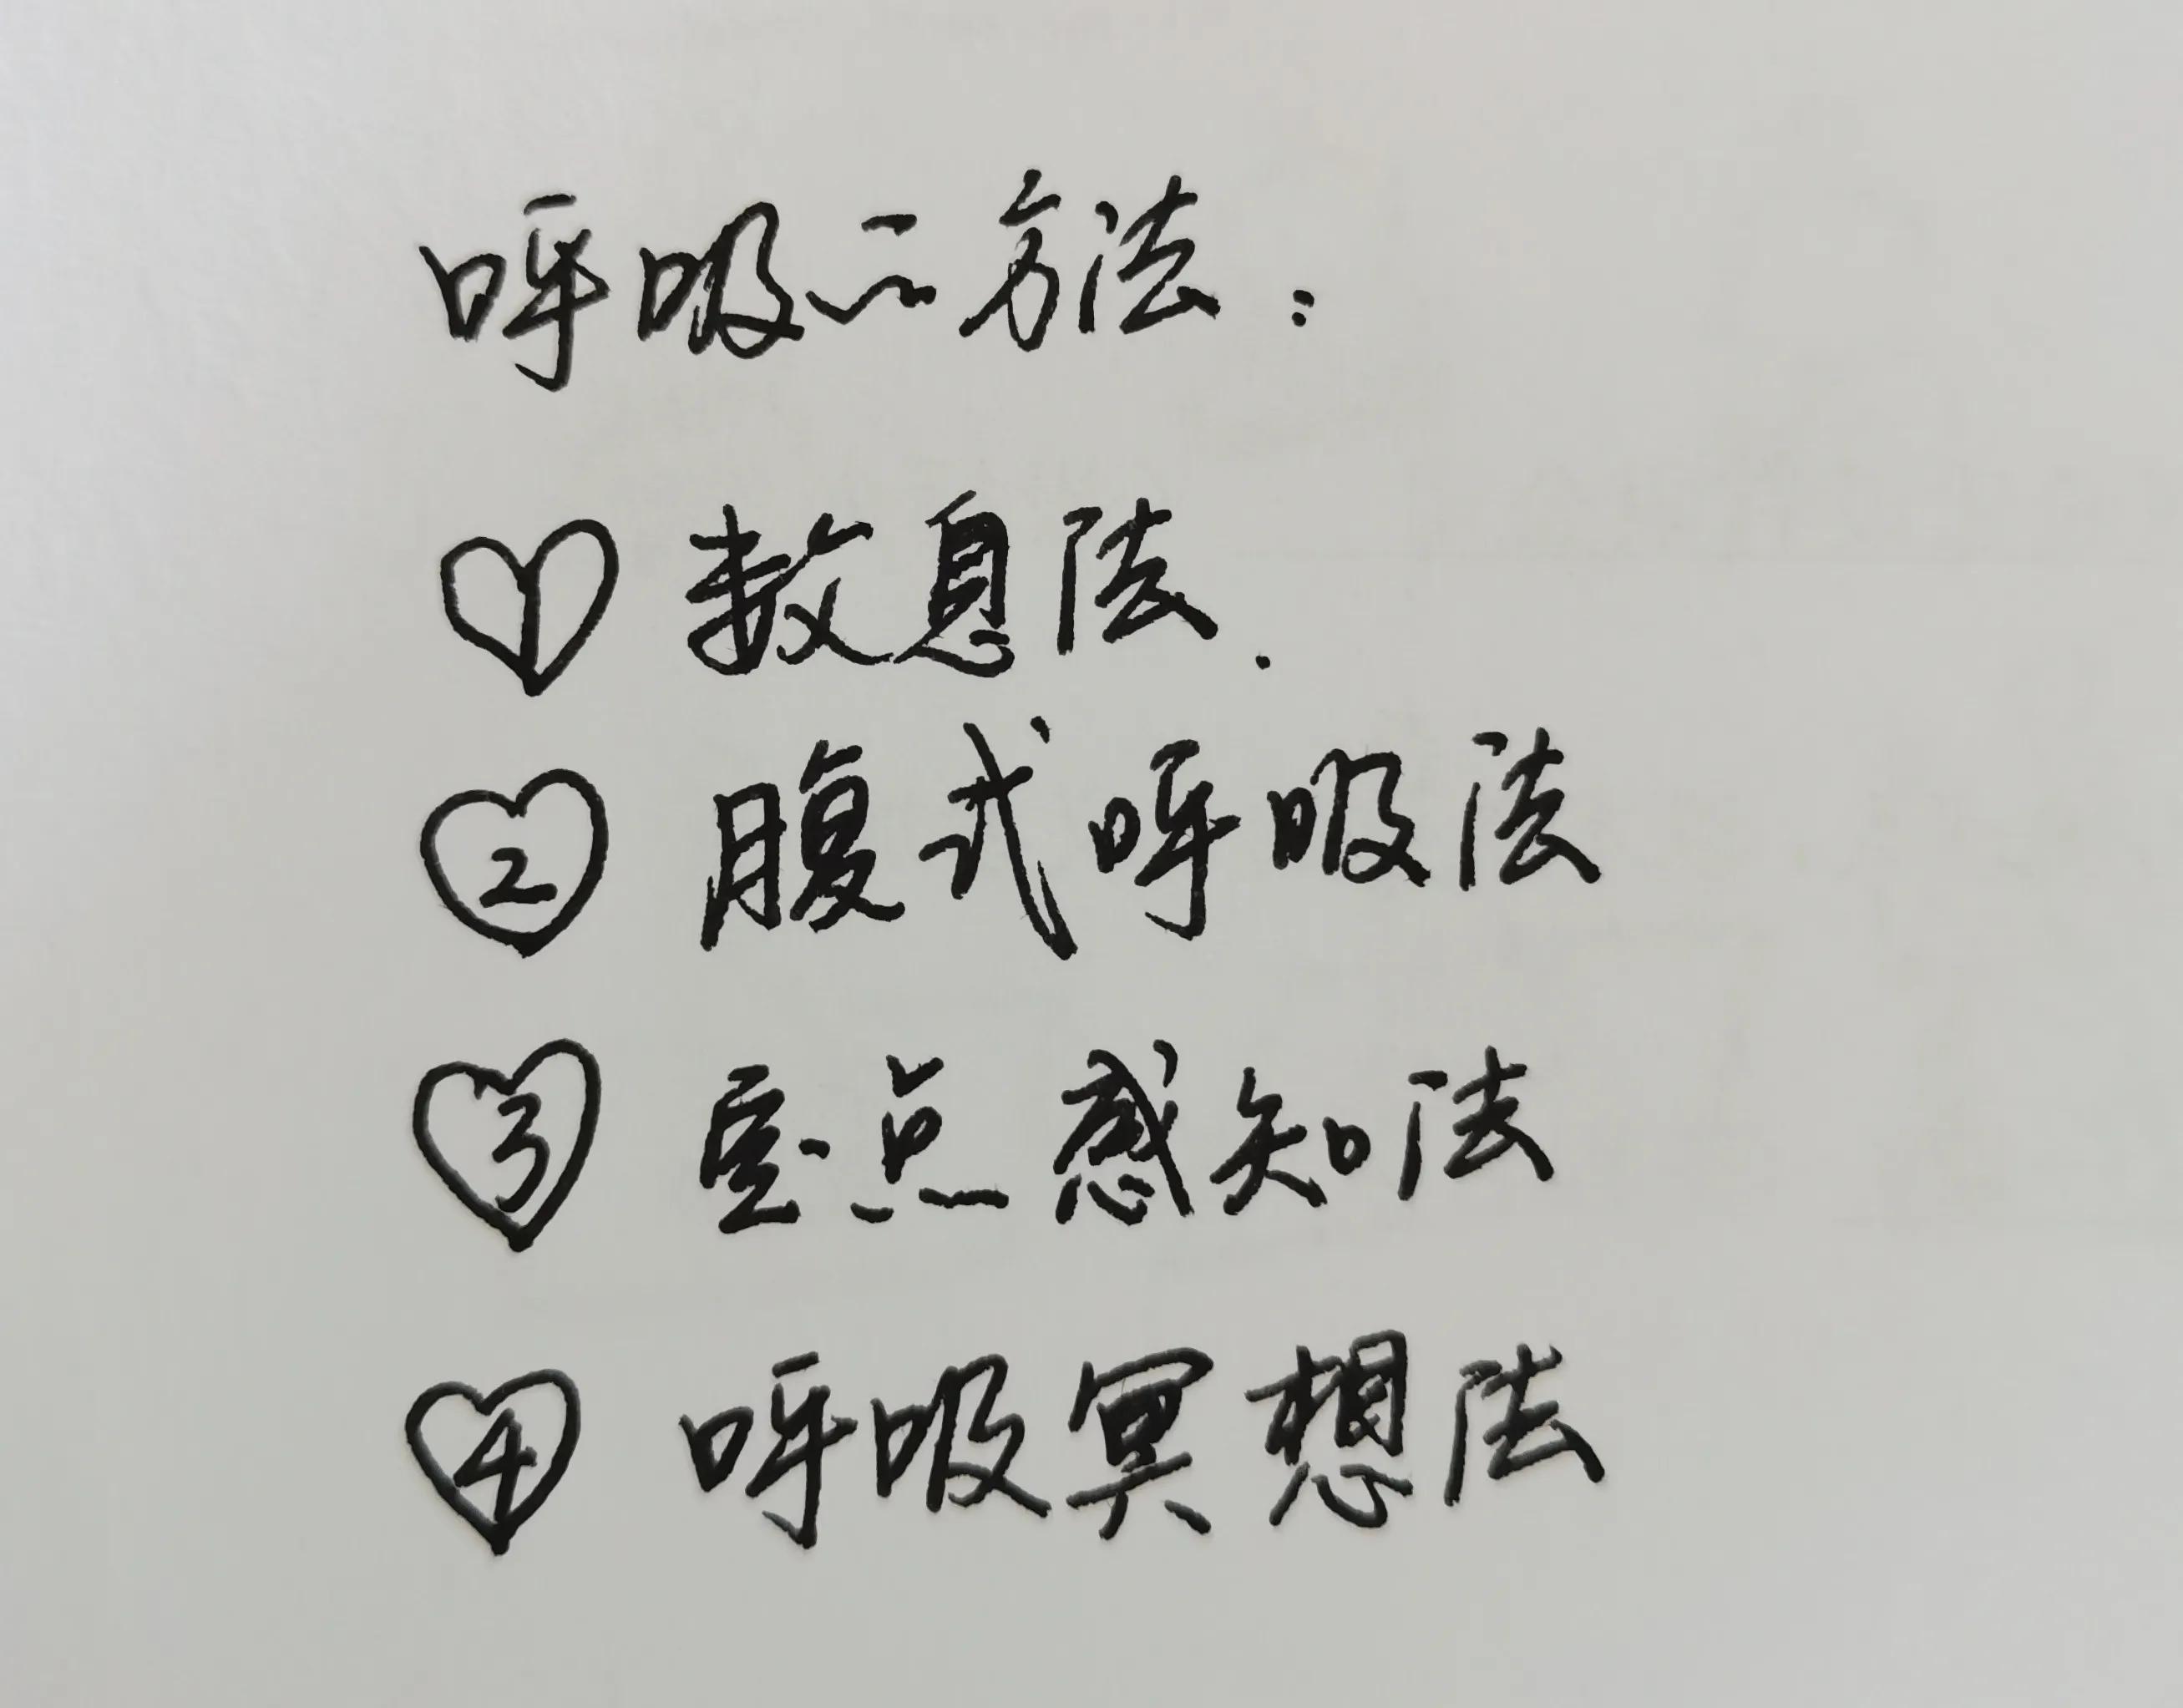 呼吸方法：
1 数息法.
2 腹式呼吸法
3 点感知法
4 呼吸冥想法